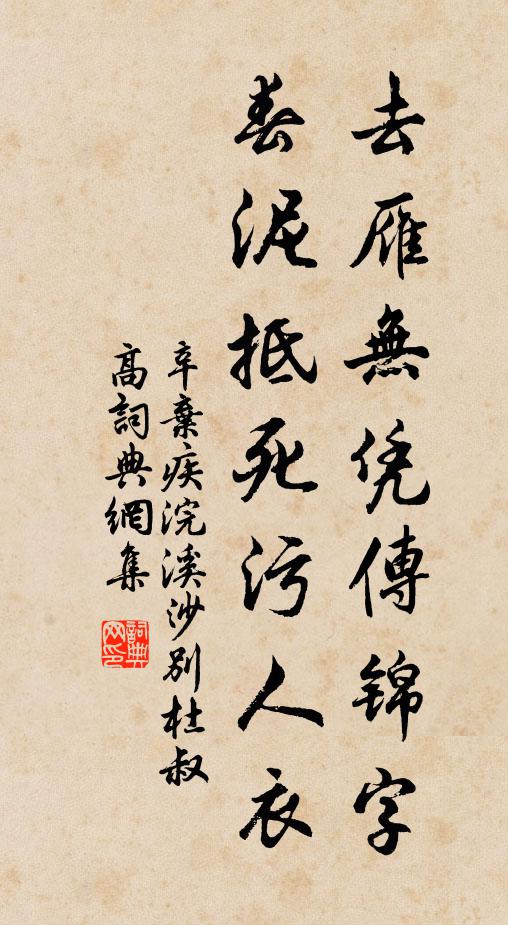 去雁無凭傳錦字
春泥抵死污人衣
辛棄疾浣溪沙別杜叔
高詞典網集
詞典網印